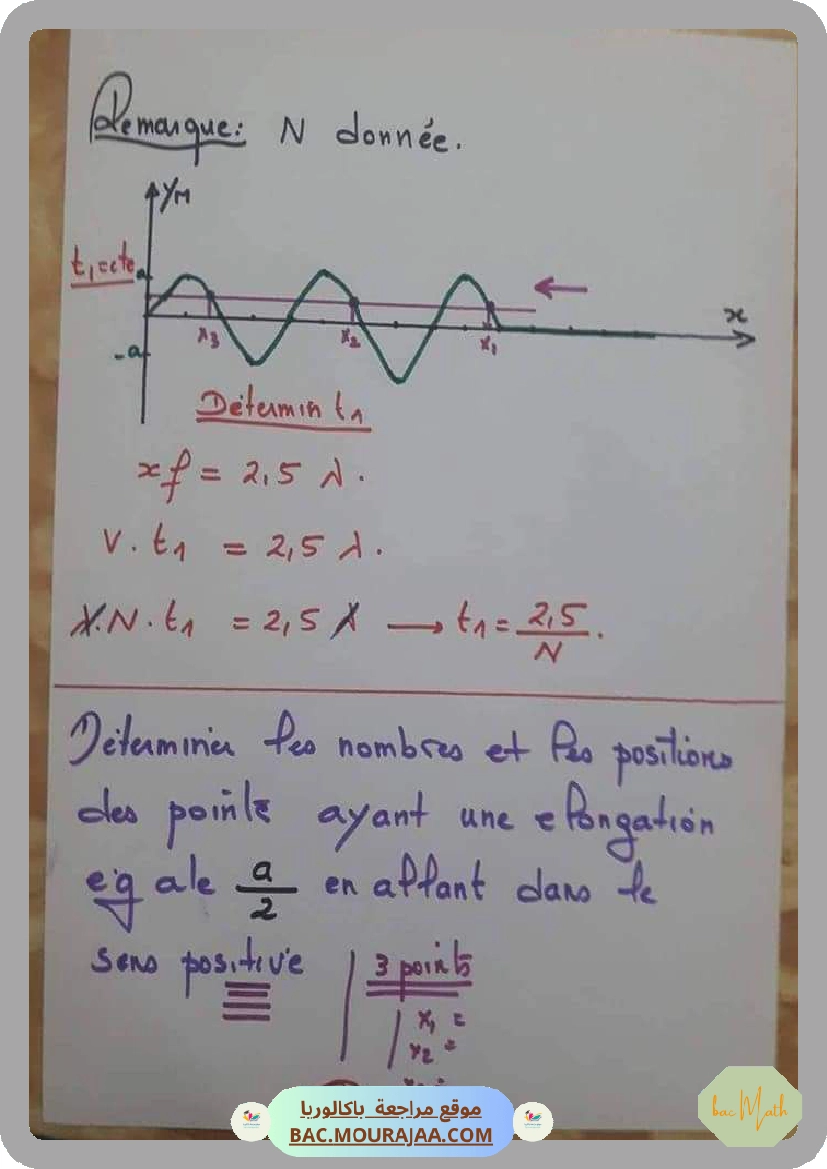 Remarque: N donnée.
yM
t₁=cte
a
-a
x₃
x₂
x₁
x
Determin t₁
xf = 2,5 λ.
V. t₁ = 2,5 λ.
λ.N.t₁ = 2,5 λ → t₁ = 2,5/N.
Determiner les nombres et les positions
des points ayant une elongation
egale a/2 en allant dans le
sens positive
3 points
x₁ =
x₂ =
موقع مراجعة باكالوريا
BAC.MOURAJAA.COM
bac Math